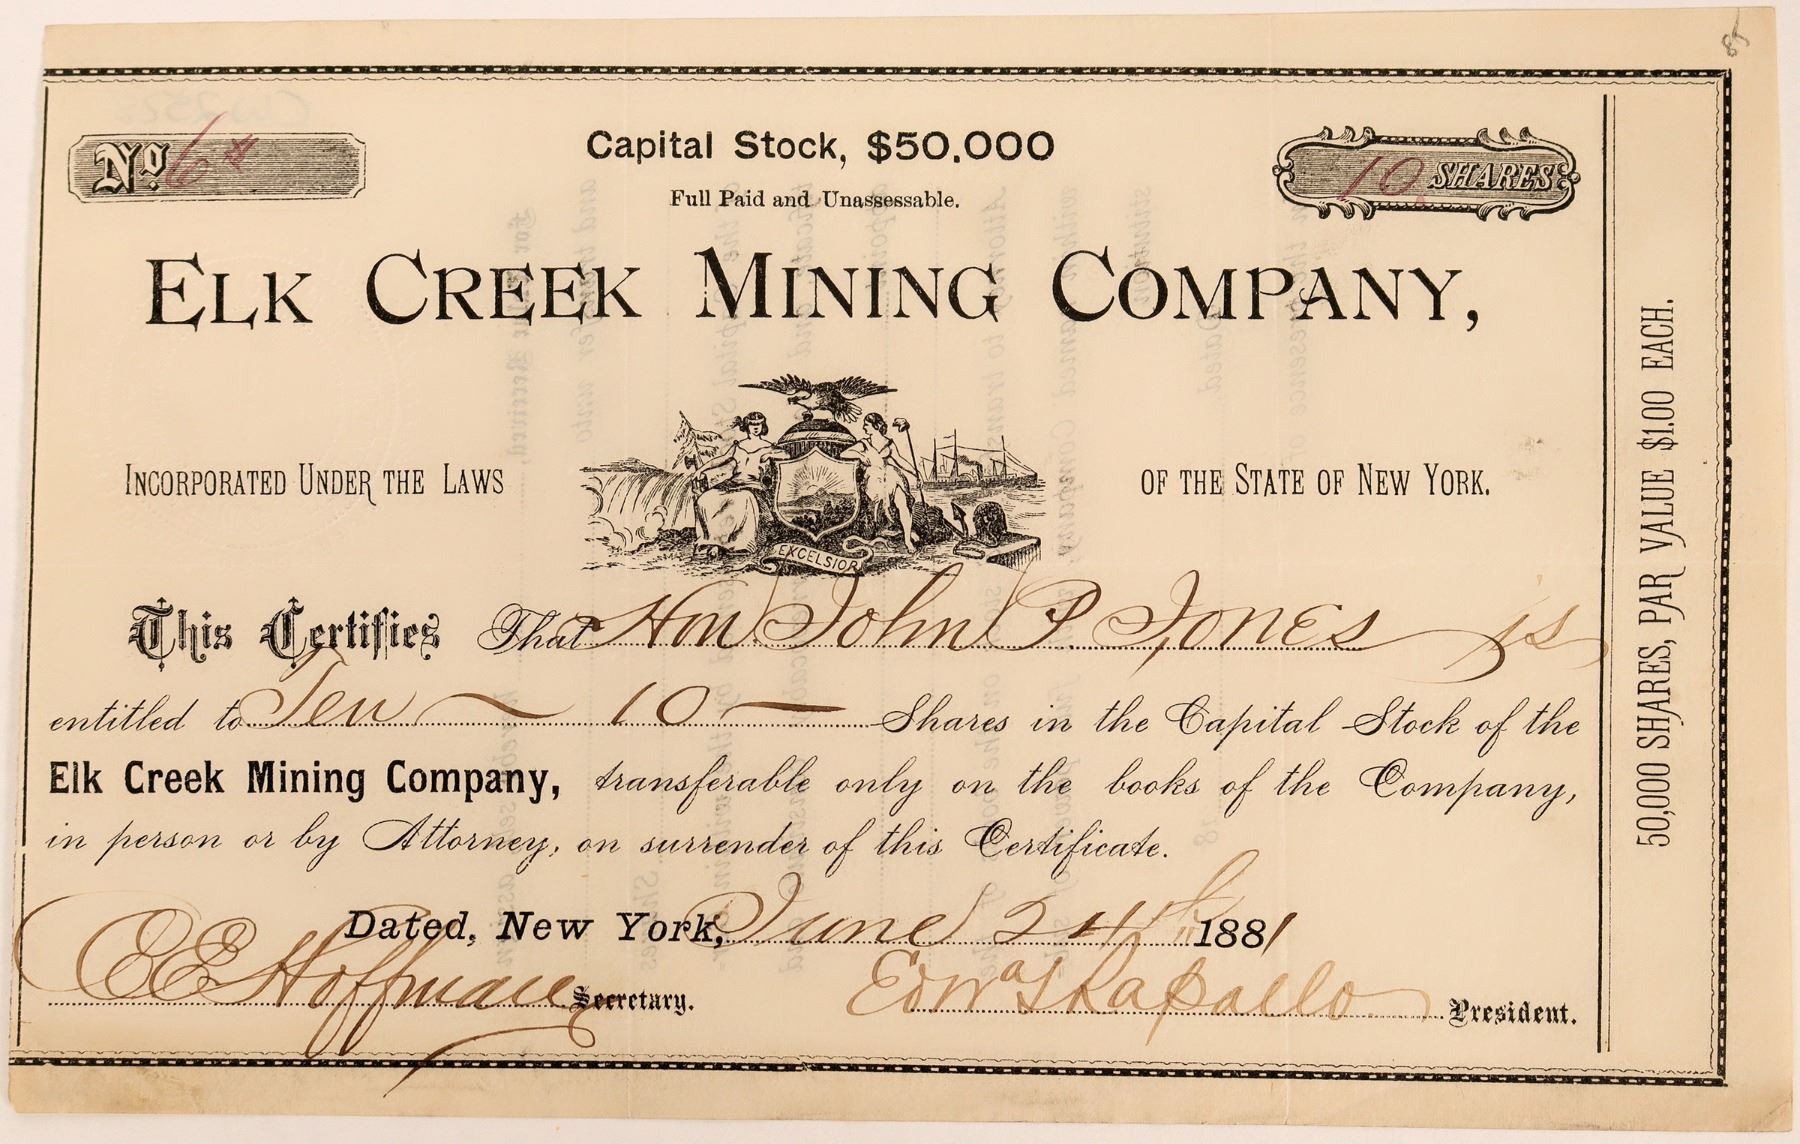 85
No. 6
Capital Stock, $50.000
10 SHARES
Full Paid and Unassessable.
ELK CREEK MINING COMPANY,
INCORPORATED UNDER THE LAWS OF THE STATE OF NEW YORK.
EXCELSIOR
This Certifies That Hon John P. Jones is
entitled to Ten ~ 10 — Shares in the Capital Stock of the
Elk Creek Mining Company, transferable only on the books of the Company,
in person or by Attorney, on surrender of this Certificate.
Dated, New York, June 24th 1881
E E Hoffman Secretary. Edwd L Rapallo President.
50,000 SHARES, PAR VALUE $1.00 EACH.